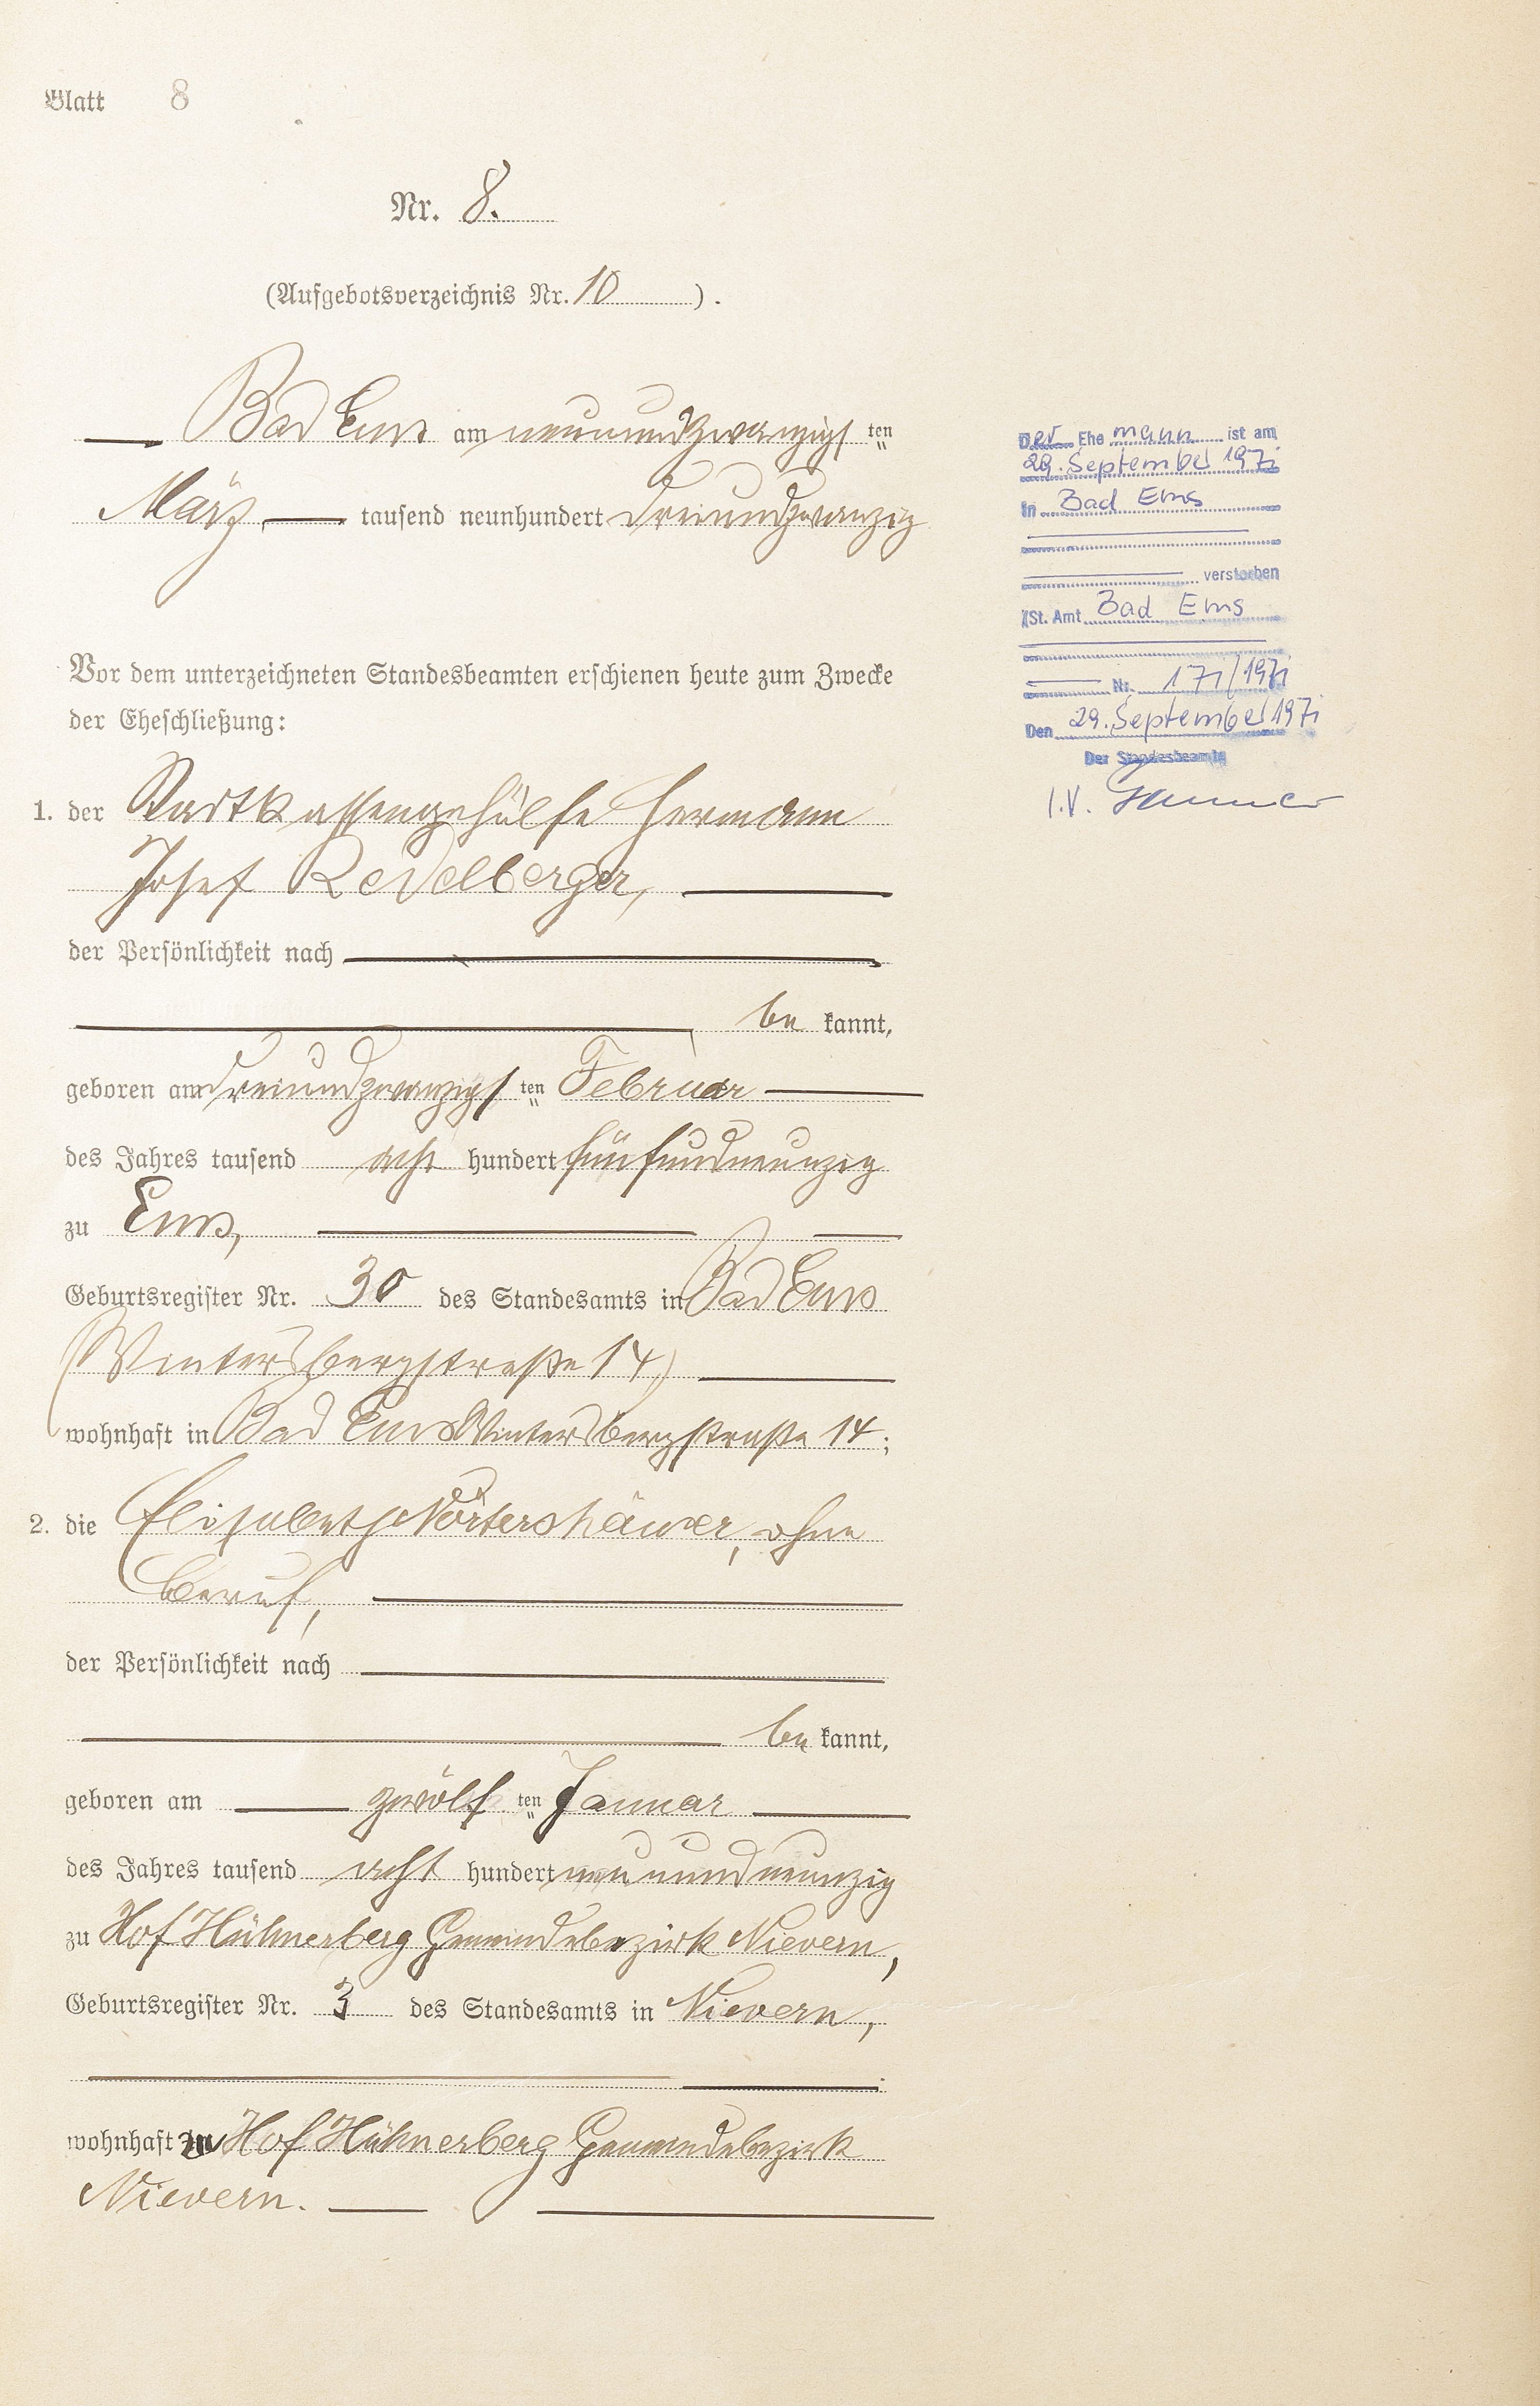 Blatt 8
Nr. 8.
(Aufgebotsverzeichnis Nr. 10 ).
Bad Ems am neunundzwanzigsten
März tausend neunhundert dreiundzwanzig
Vor dem unterzeichneten Standesbeamten erschienen heute zum Zwecke
der Eheschließung:
1. der Stadtkassengehülfe Hermann
Josef Redelberger,
der Persönlichkeit nach
be kannt,
geboren am dreiundzwanzigsten Februar
des Jahres tausend acht hundert fünfundneunzig
zu Ems,
Geburtsregister Nr. 30 des Standesamts in Bad Ems
(Wintersbergstraße 14)
wohnhaft in Bad Ems Wintersbergstraße 14;
2. die Elisabeth Nörtershäuser, ohne
Beruf,
der Persönlichkeit nach
be kannt,
geboren am zwölf ten Januar
des Jahres tausend acht hundert neunundneunzig
zu Hof Hühnerberg Gemeindebezirk Nievern,
Geburtsregister Nr. 3 des Standesamts in Nievern,
wohnhaft zu Hof Hühnerberg Gemeindebezirk
Nievern.
Der Ehe mann ist am
29. September 1971
in Bad Ems
verstorben
(St. Amt Bad Ems
Nr. 171/1971
Den 29. September 1971
Der Standesbeamte
I.V.